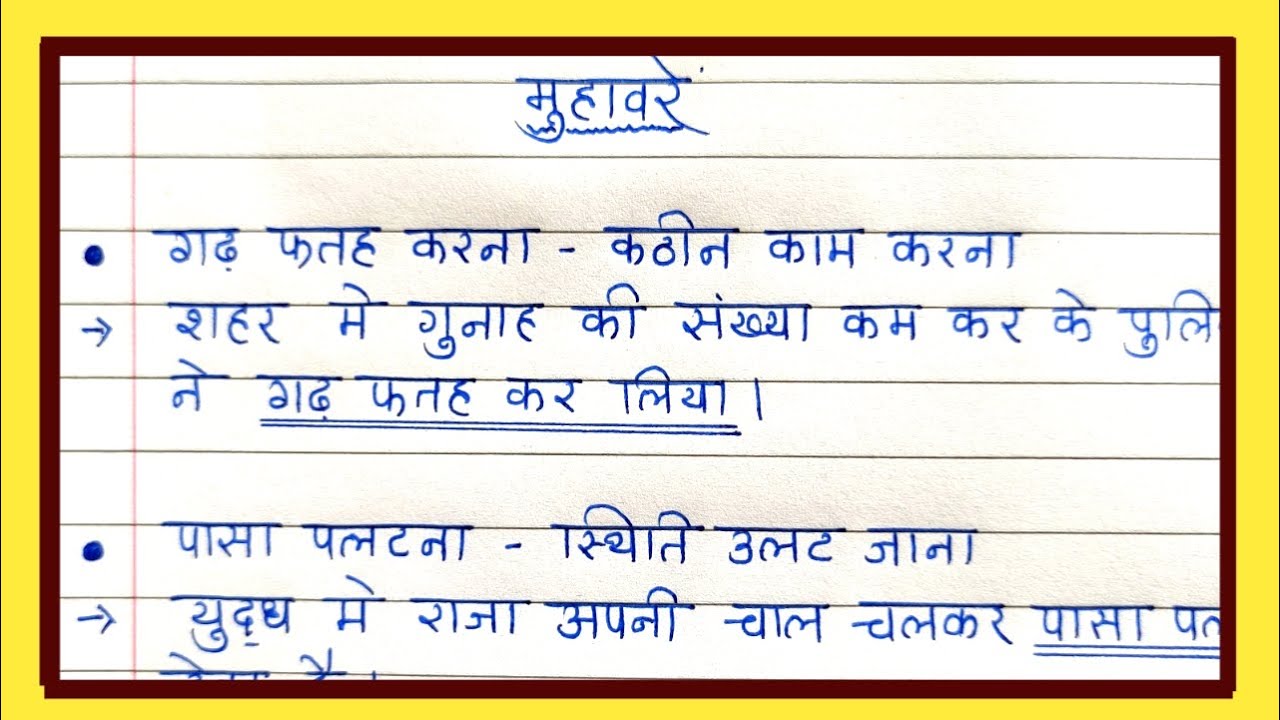 मुहावरें
• गढ़ फतह करना - कठीन काम करना
→ शहर मे गुनाह की संख्या कम कर के
ने गढ़ फतह कर लिया।
• पासा पलटना - स्थिति उलट जाना
→ युद्ध मे राजा अपनी चाल चलकर पासा